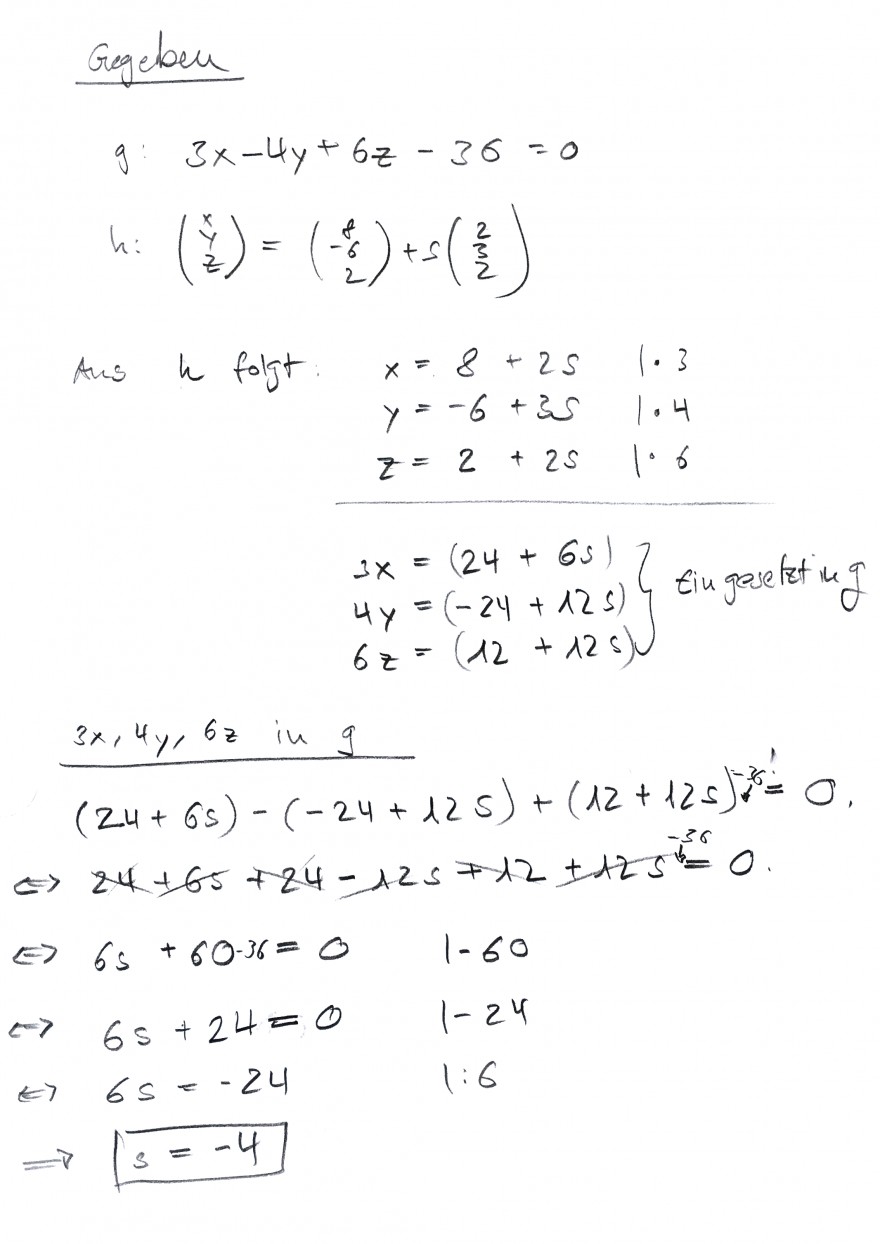 Gegeben
g: 3x-4y+6z - 36 = 0
h: (x y z) = (8 -6 2) + s (2 3 2)
Aus h folgt: x = 8 + 2s |· 3
y = -6 + 3s |· 4
z = 2 + 2s |· 6
3x = (24 + 6s)
4y = (-24 + 12s) } Eingesetzt in g
6z = (12 + 12s)
3x, 4y, 6z in g
(24 + 6s) - (-24 + 12s) + (12 + 12s) -36 = 0.
⇔ 24 + 6s + 24 - 12s + 12 + 12s -36 = 0.
⇔ 6s + 60-36 = 0 |-60
⇔ 6s + 24 = 0 |-24
⇔ 6s = -24 |:6
⇒ s = -4